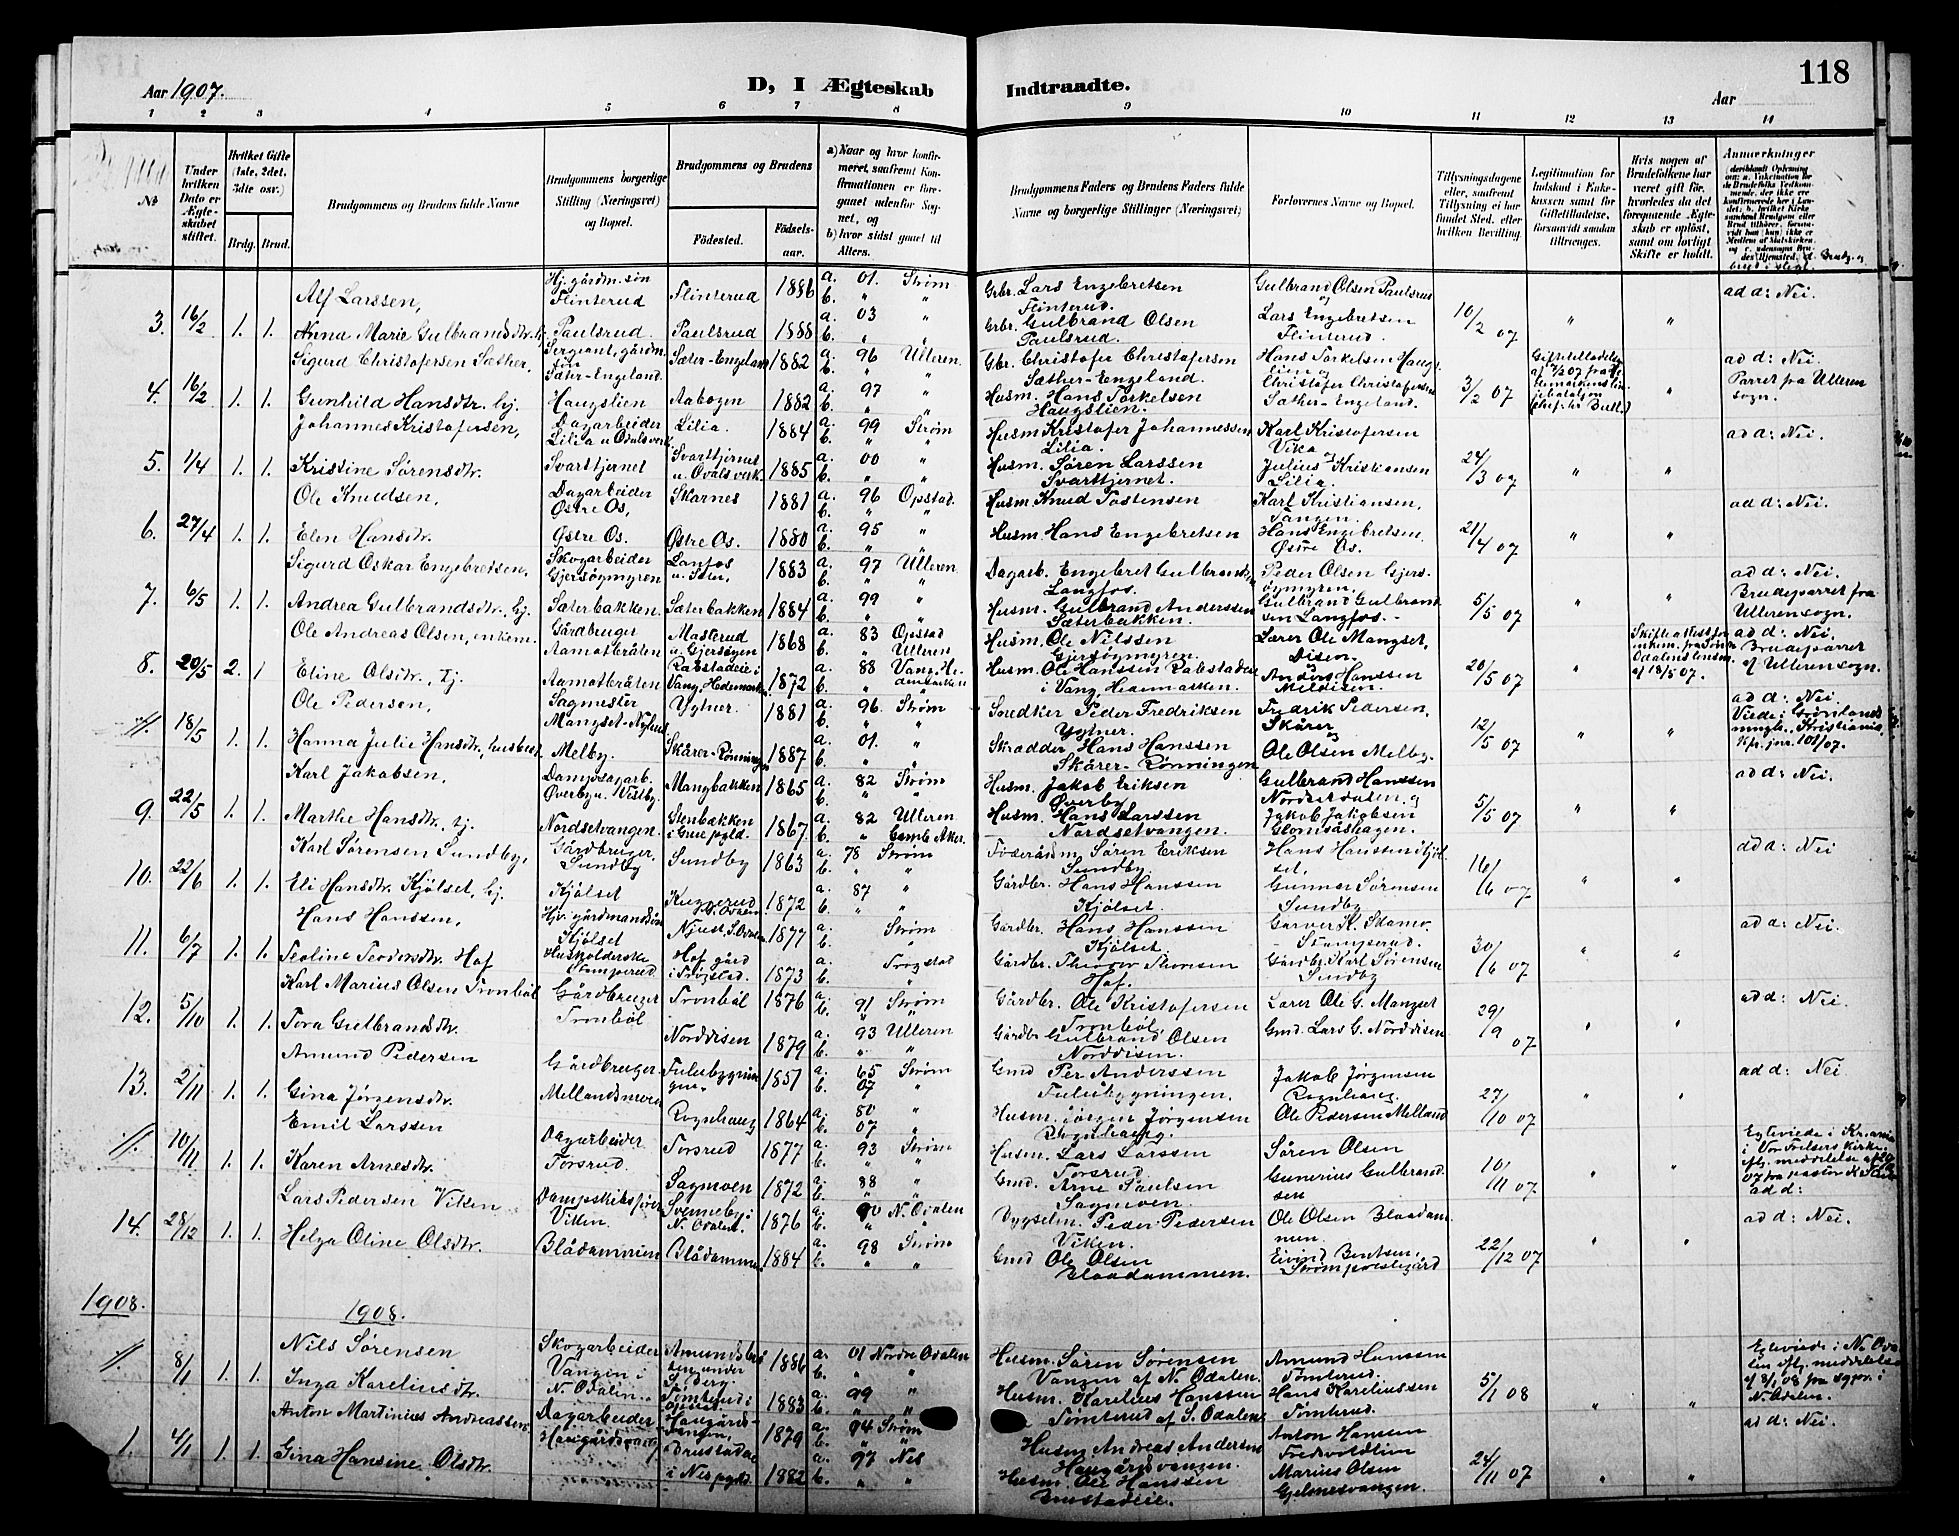 118
Aar 1907.
D, I Ægteskab Indtraadte.
Aar
1 2 3 4 5 6 7 8 9 10 11 12 13 14
No
Under hvilken Dato er Ægteskabet stiftet.
Hvilket Gifte (1ste, 2det, 3die osv.)
Brdg. Brud.
Brudgommens og Brudens fulde Navne
Brudgommens borgerlige Stilling (Næringsvei) og Bopæl.
Brudgommens og Brudens
Födested.
Födselsaar.
a) Naar og hvor konfirmeret, saafremt Konfirmationen er foregaaet udenfor Sognet, og
b) hvor sidst gaaet til Alters.
Brudgommens Faders og Brudens Faders fulde Navne og borgerlige Stillinger (Næringsvei)
Forlovernes Navne og Bopæl.
Tillysningsdagene eller, saafremt Tillysning ei har fundet Sted, efter hvilken Bevilling.
Legitimation for Indskud i Enkekassen samt for Giftetilladelse, forsaavidt saadan tiltrænges.
Hvis nogen af Brudefolkene har været gift för, hvorledes da det foregaaende Ægteskab er oplöst, samt om lovligt Skifte er holdt.
Anmærkninger
Alf Larssen, Hj. gårdm. søn Flinterud Flinterud 1886 a. 01. Strøm b. " " Grbr. Lars Engebretsen Flinterud. Gulbrand Olsen Paulsrud og ad d: Nei.
3. 16/2 1. 1. Anna Marie Gulbrandsdtr. hj. Paulsrud Paulsrud 1888 a. 03 " b. " " Grbr. Gulbrand Olsen Paulsrud. Lars Engebretsen Flinterud. 10/2 07 " "
Sigurd Christofersen Sæther, Sergeant, gårdm. søn Sæter-Engeland. Sæter-Engeland 1882 a. 96 Ulleren b. " " Gbr. Christofer Christofersen Sæther-Engeland. Hans Torkelsen Haugslien og ad d: Nei. Parret fra Ulleren sogn.
4. 16/2 1. 1. Gunhild Hansdtr. hj. Haugslien Aabogen 1882 a. 97 " b. " " Husm. Hans Torkelsen Haugslien. Christofer Christofersen Sæther-Engeland. 3/2 07 "
Johannes Kristofersen, Dagarbeider Lilia u. Odalsverk Lilia. 1884 a. 99 Strøm b. " " Husm Kristofer Johannessen Lilia. Karl Kristofersen Vika ad d: Nei.
5. 1/4 1. 1. Kristine Sørensdtr. Svarttjernet Svarttjernet u. Odals verk. 1885 a. 00 " b. " " Husm. Søren Larssen Svarttjernet. Julius Kristiansen Lilia. 24/3 07 " "
Ole Knudsen, Dagarbeider Østre Os, Skarnes 1881 a. 96 Opstad. b. " " Husm Knud Tostensen Karl Kristiansen, Tangen. ad d: Nei.
6. 27/4 1. 1. Elen Hansdtr. Østre Os. Østre Os. 1880 a. 95 " b. " " Husm Hans Engebretsen Hans Engebretsen, Østre Os. 21/4 07 " "
Sigurd Oskar Engebretsen, Skogarbeider Gjersøymyren Langfos 1883 a. 97 Ulleren b. " " Dagarb. Engebret Gulbrandsen Langfos. Peder Olsen Gjersøymyren. ad d: Nei. Brudeparret fra Ulleren sogn.
7. 6/5 1. 1. Andrea Gulbrandsdtr. hj. Sæterbakken. Sæterbakken 1884 a. 99 " b. " " Husm. Gulbrand Anderssen Sæterbakken. Gulbrand Gulbrandsen Langfos. 5/5 07 " "
Ole Andreas Olsen, enkem. Gårdbruger Aamotbråten Masterud u. Gjersøyen 1868 a. 83 Opstad b. " Ulleren Husm. Ole Nilssen Gjersøymyren. Lærer Ole Mangset, Disen. ad d: Nei. Brudeparret af Ulleren sogn.
8. 20/5 2. 1 Eline Olsdtr., tj. Aamotbråten Rabstadeie i Vang, Hedemarken. 1872 a. 88 Vang, Hedemarken b. " " Husm. Ole Hanssen Rabstadeie i Vang, Hedemarken. Anders Hanssen Meldisen. 20/5 07 "
Ole Pedersen, Sagmester Mangset-Nyhus Ygtner. 1881 a. 96 Strøm b. " " Snedker Peder Fredriksen Ygtner. Fredrik Pedersen, Skårer ad d: Nei. Viede i Grønlands mingh., Kristiania, Kfr. jnr. 101/07.
//. 18/5 1. 1. Hanna Julie Hansdtr, Melby. Skårer-Rønningen 1887 a. 01. " b. " " Skrædder Hans Hanssen Skårer-Rønningen Ole Olsen Melby. 12/5 07 " "
Karl Jakobsen, Dampsagarb. Øverby u. Vestby. Mangbakken 1865 a. 82 Strøm b. " " Husm. Jakob Eriksen Øverby Gulbrand Hanssen og ad d: Nei.
9. 22/5 1. 1. Marthe Hansdtr, tj. Nordsetvangen. Stenbakken i Grue pgld. 1867 a. 82 Ulleren b. " Gamle Aker. Husm. Hans Larssen Nordsetvangen. Jakob Jakobsen Glomsåshagen. 5/5 07 " "
Karl Sørensen Sundby, Gårdbruger, Sundby Sundby 1863 a. 78 Strøm b. " " Føderådsm Søren Eriksen Sundby. Hans Hanssen Kjølset. ad d: Nei
10. 22/6 1. 1. Eli Hansdtr. Kjølset, hj. Kjølset Kuggerud S. Odalen 1872 a. 87 b. " " Gårdbr. Hans Hanssen Kjølset. Gunnar Sørensen Sundby 16/6 07 " "
Hans Hanssen, Hjv. gårdmandssøn Kjølset Njust, S. Odalen 1877 a. Strøm b. " Gårdbr. Hans Hanssen Kjølset. Garver K. Skamo. Stamperud. ad d: Nei.
11. 6/7 1. 1. Teoline Teodorsdtr. Hof Husholderske Stamperud Hof gård i Trøgstad. 1873 a. Trøgstad b. " Gårdbr. Theodor Thoresen Hof. Gårdbr. Karl Sørensen Sundby 30/6 07 " "
Karl Marius Olsen Tronbøl Gårdbruger Tronbøl Tronbøl 1876 a. 91 Strøm b. " " Gårdbr. Ole Kristofersen Tronbøl, Lærer Ole G. Mangset ad d: Nei.
12. 5/10 1. 1. Tora Gulbrandsdtr. Norddisen 1879 a. 93 Ulleren b. " " Gårdbr Gulbrand Olsen Norddisen. Gmd. Lars G. Norddisen 29/9 07 " "
Amund Pedersen Gårdbruger Fulubygningen 1851 a. 65 Strøm b. 07 " Gmd Per Anderssen Fulubygningen. Jakob Jørgensen Rognhaug ad d: Nei
13. 2/11 1. 1. Gina Jørgensdtr. Mellandsmoen Rognhaug 1864 a. 80 " b. 07 " Husm. Jørgen Jørgensen Rognhaug. Ole Pedersen Melland 27/10 07 " "
Emil Larssen Dagarbeider Torsrud. Torsrud 1877 a. 93 Strøm b. " " Husm. Lars Larssen Torsrud Søren Olsen Egteviede i Kr.ania i Vor Frelsers kirke ad d:
//. 10/11 1. 1. Karen Arnesdtr. Sagmoen 1872 a. 88 " b. " " Gmd. Arne Paulsen Sagmoen Gunerius Gulbrandsen 10/11 07 " "
Lars Pedersen Viken Dampskibsfører Viken. Svenneby i N. Odalen. 1876 a. 90 N. Odalen b. " " Bygselm. Peder Pedersen Viken. Ole Olsen Blaadammen. ad d: Nei.
14. 28/12 1. 1. Helga Oline Olsdtr. Blådammen Blådammen. 1884 a. 98 Strøm b. " " Gmd Ole Olsen Blaadammen. Eivind Berntsen, Strømprestegård 22/12 07 " "
1908. 1908.
Nils Sørensen Skogarbeider Vangen i N. Odalen. 1886 a. 01 Nordre Odalen b. " Husm. Søren Sørensen Vangen af N. Odalen. Amund Hanssen Tømterud. Egteviede i N. Odalen eflg. meddelelse af 8/1 08 fra sogpr. i N. Odalen.
//. 8/1 1. 1. Inga Kareliusdtr. Tømterud i 1883 a. 99 " b. " " Husm. Karelius Hanssen Tømterud af S. Odalen. Hans Kareliussen Tømterud. 5/1 08 " "
Anton Martinius Andreassen Dagarbeider Haugårdsvang Haugårdsvangen, 1879 a. 94 Strøm b. " " Husm Andreas Andersen Haugårdsvangen. Anton Hansen Fredvoldlien ad d: Nei.
1. 4/1 1. 1. Gina Hansine Olsdtr. Brustadeie i Nes pgld. 1882 a. 97 Nes b. " " Husm. Ole Hanssen Brustadeie. Marius Olsen Gjelmesvangen. 24/11 07 " "